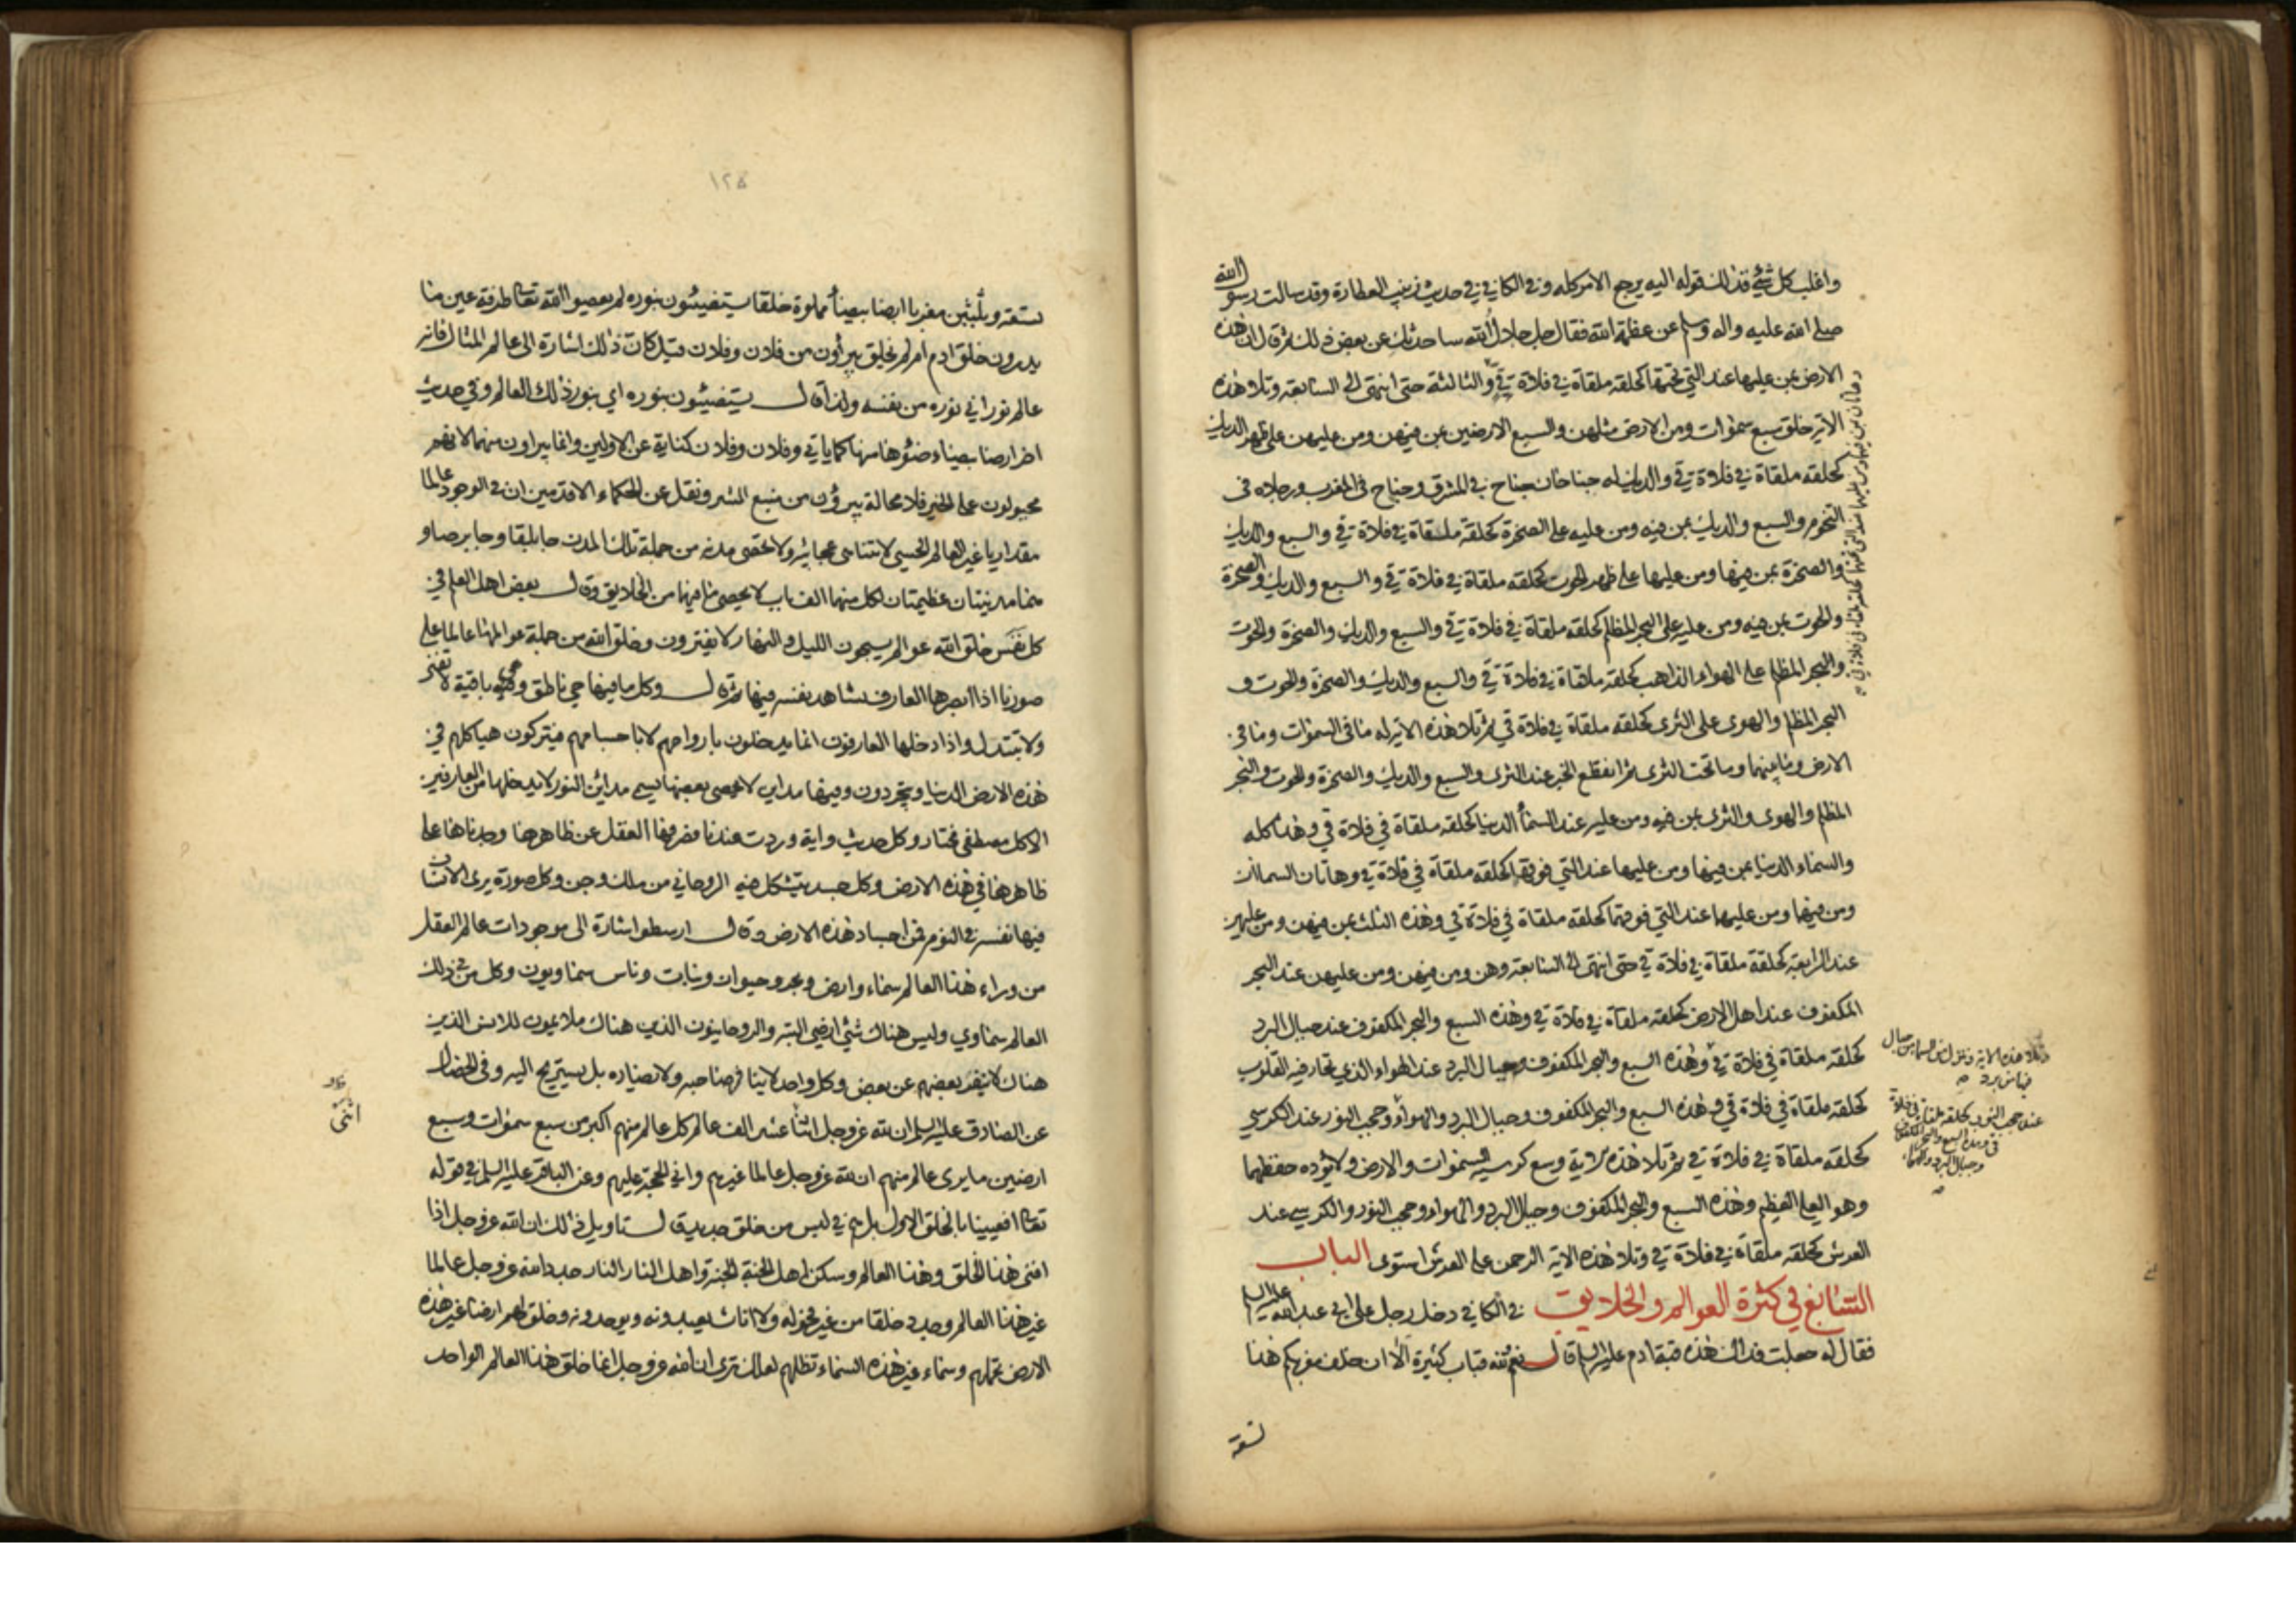 واغلب كل شئ فذلك قوله اليه يرجع الامر كله وفي الكافي في حديث زينب العطارة وقد سالت رسول الله
صلى الله عليه واله وسلم عن عظمة الله فقال جل جلال الله ساحدثك عن بعض ذلك ثم قال ان هذه
الارض بمن عليها عند التي تحتها كحلقة ملقاة في فلاة قي والثالثة حتى انتهى الى السابعة وتلا هذه
الاية خلق سبع سموات ومن الارض مثلهن والسبع الارضين بمن فيهن ومن عليهن على ظهر الديك
كحلقة ملقاة في فلاة قي والديك له جناحان جناح في المشرق وجناح في المغرب ورجلاه في
التخوم والسبع والديك بمن فيه ومن عليه على الصخرة كحلقة ملقاة في فلاة قي والسبع والديك
والصخرة بمن فيها ومن عليها على ظهر الحوت كحلقة ملقاة في فلاة قي والسبع والديك والصخرة
والحوت بمن فيه ومن عليه على البحر المظلم كحلقة ملقاة في فلاة قي والسبع والديك والصخرة والحوت
والبحر المظلم على الهواء الذاهب كحلقة ملقاة في فلاة قي والسبع والديك والصخرة والحوت و
البحر المظلم والهوى على الثرى كحلقة ملقاة في فلاة قي ثم تلا هذه الاية له ما في السموات وما في
الارض وما بينهما وما تحت الثرى ثم انقطع الخبر عند الثرى والسبع والديك والصخرة والحوت والبحر
المظلم والهوى والثرى بمن فيه ومن عليه عند السماء الدنيا كحلقة ملقاة في فلاة قي وهذا كله
والسماء الدنيا بمن فيها ومن عليها عند التي فوقها كحلقة ملقاة في فلاة قي وهاتان السماان
ومن فيهما ومن عليهما عند التي فوقهما كحلقة ملقاة في فلاة قي وهذه الثلث بمن فيهن ومن عليهن
عند الرابعة كحلقة ملقاة في فلاة قي حتى انتهى الى السابعة وهن ومن فيهن ومن عليهن عند البحر
المكفوف عند اهل الارض كحلقة ملقاة في فلاة قي وهذه السبع والبحر المكفوف عند جبال البرد
كحلقة ملقاة في فلاة قي وهذه السبع والبحر المكفوف وجبال البرد عند الهواء الذي تحار فيه القلوب
كحلقة ملقاة في فلاة قي وهذه السبع والبحر المكفوف وجبال البرد والهواء وحجب النور عند الكرسي
كحلقة ملقاة في فلاة قي ثم تلا هذه الاية وسع كرسيه السموات والارض ولا يؤده حفظهما
وهو العلي العظيم وهذه السبع والبحر المكفوف وجبال البرد والهواء وحجب النور والكرسي عند
العرش كحلقة ملقاة في فلاة قي وتلا هذه الاية الرحمن على العرش استوى الباب
السابع في كثرة العوالم والخلايق في الكافي دخل رجل على ابي عبد الله عليه السلم
فقال له جعلت فداك هذه قبة ادم عليه السلم قال نعم ولله قباب كثيرة الا ان خلف مغربكم هذا
تسعة
وهاتان بمن فيهما ومن عليهما عند التي تحتها كحلقة ملقاة في فلاة قي
وتلا هذه الاية وينزل من السماء من جبال
فيها من برد
عند حجب النور كحلقة ملقاة في فلاة
قي وهذه السبع والبحر المكفوف
وجبال البرد والهواء
١٢٥
تسعة وثلثين مغربا ارضا بيضاء مملوة خلقا يستضيئون بنوره لم يعصوا الله تعالى طرفة عين ما
يدرون خلق ادم ام لم يخلق يبرأون من فلان وفلان قيل كان ذلك اشارة الى عالم المثال فانه
عالم نوراني نوره من نفسه ولذا قال يستضيئون بنوره اي بنور ذلك العالم وفي حديث
اخر ارضا بيضاء ضوؤها منها كما ياتي وفلان وفلان كناية عن الاولين وانما يبراون منهما لانهم
مجبولون على الخير فلا محالة يبرؤن من منبع الشر ونقل عن الحكماء الاقدمين ان في الوجود عالما
مقداريا غير العالم الحسي لا تتناهى عجائبه ولا تحصى مدنه من جملة تلك المدن جابلقا وجابرصا و
هما مدينتان عظيمتان لكل منهما الف باب لا يحصى ما فيها من الخلايق وقال بعض اهل العلم في
كل نفس خلق الله عوالم يسبحون الليل والنهار لا يفترون وخلق الله من جملة عوالمها عالما على
صورنا اذا ابصرها العارف يشاهد نفسه فيها ثم قال وكل ما فيها حي ناطق وهي باقية لا تفنى
ولا تتبدل واذا دخلها العارفون انما يدخلون بارواحهم لا باجسامهم فيتركون هياكلهم في
هذه الارض الدنيا ويتجردون وفيها مداين لا تحصى بعضها يسمى مداين النور لا يدخلها من العارفين
الا كل مصطفى مختار وكل حديث واية وردت عندنا مما صرفها العقل عن ظاهرها وجدناها على
ظاهرها في هذه الارض وكل جسد يتشكل فيه الروحاني من ملك وجن وكل صورة يرى الانسان
فيها نفسه في النوم فمن اجساد هذه الارض وقال ارسطو اشارة الى موجودات عالم العقل
من وراء هذا العالم سماء وارض وبحر وحيوان ونبات وناس سماويون وكل من في ذلك
العالم سماوي وليس هناك شئ ارضي البتة والروحانيون الذين هناك ملائمون للانس الذين
هناك لا ينفر بعضهم عن بعض وكل واحد لا ينافر صاحبه ولا يضاده بل يستريح اليه وفي الخصال
عن الصادق عليه السلم ان لله عز وجل اثنا عشر الف عالم كل عالم منهم اكبر من سبع سموات وسبع
ارضين ما يرى عالم منهم ان لله عز وجل عالما غيرهم واني الحجة عليهم وعن الباقر عليه السلم في قوله
تعالى افعيينا بالخلق الاول بل هم في لبس من خلق جديد قال تاويل ذلك ان الله عز وجل اذا
افنى هذا الخلق وهذا العالم وسكن اهل الجنة الجنة واهل النار النار جدد الله عز وجل عالما
غير هذا العالم وجدد خلقا من غير فحولة ولا اناث يعبدونه ويوحدونه وخلق لهم ارضا غير هذه
الارض تحملهم وسماء غير هذه السماء تظلهم لعلك ترى ان الله عز وجل انما خلق هذا العالم الواحد
انتهى